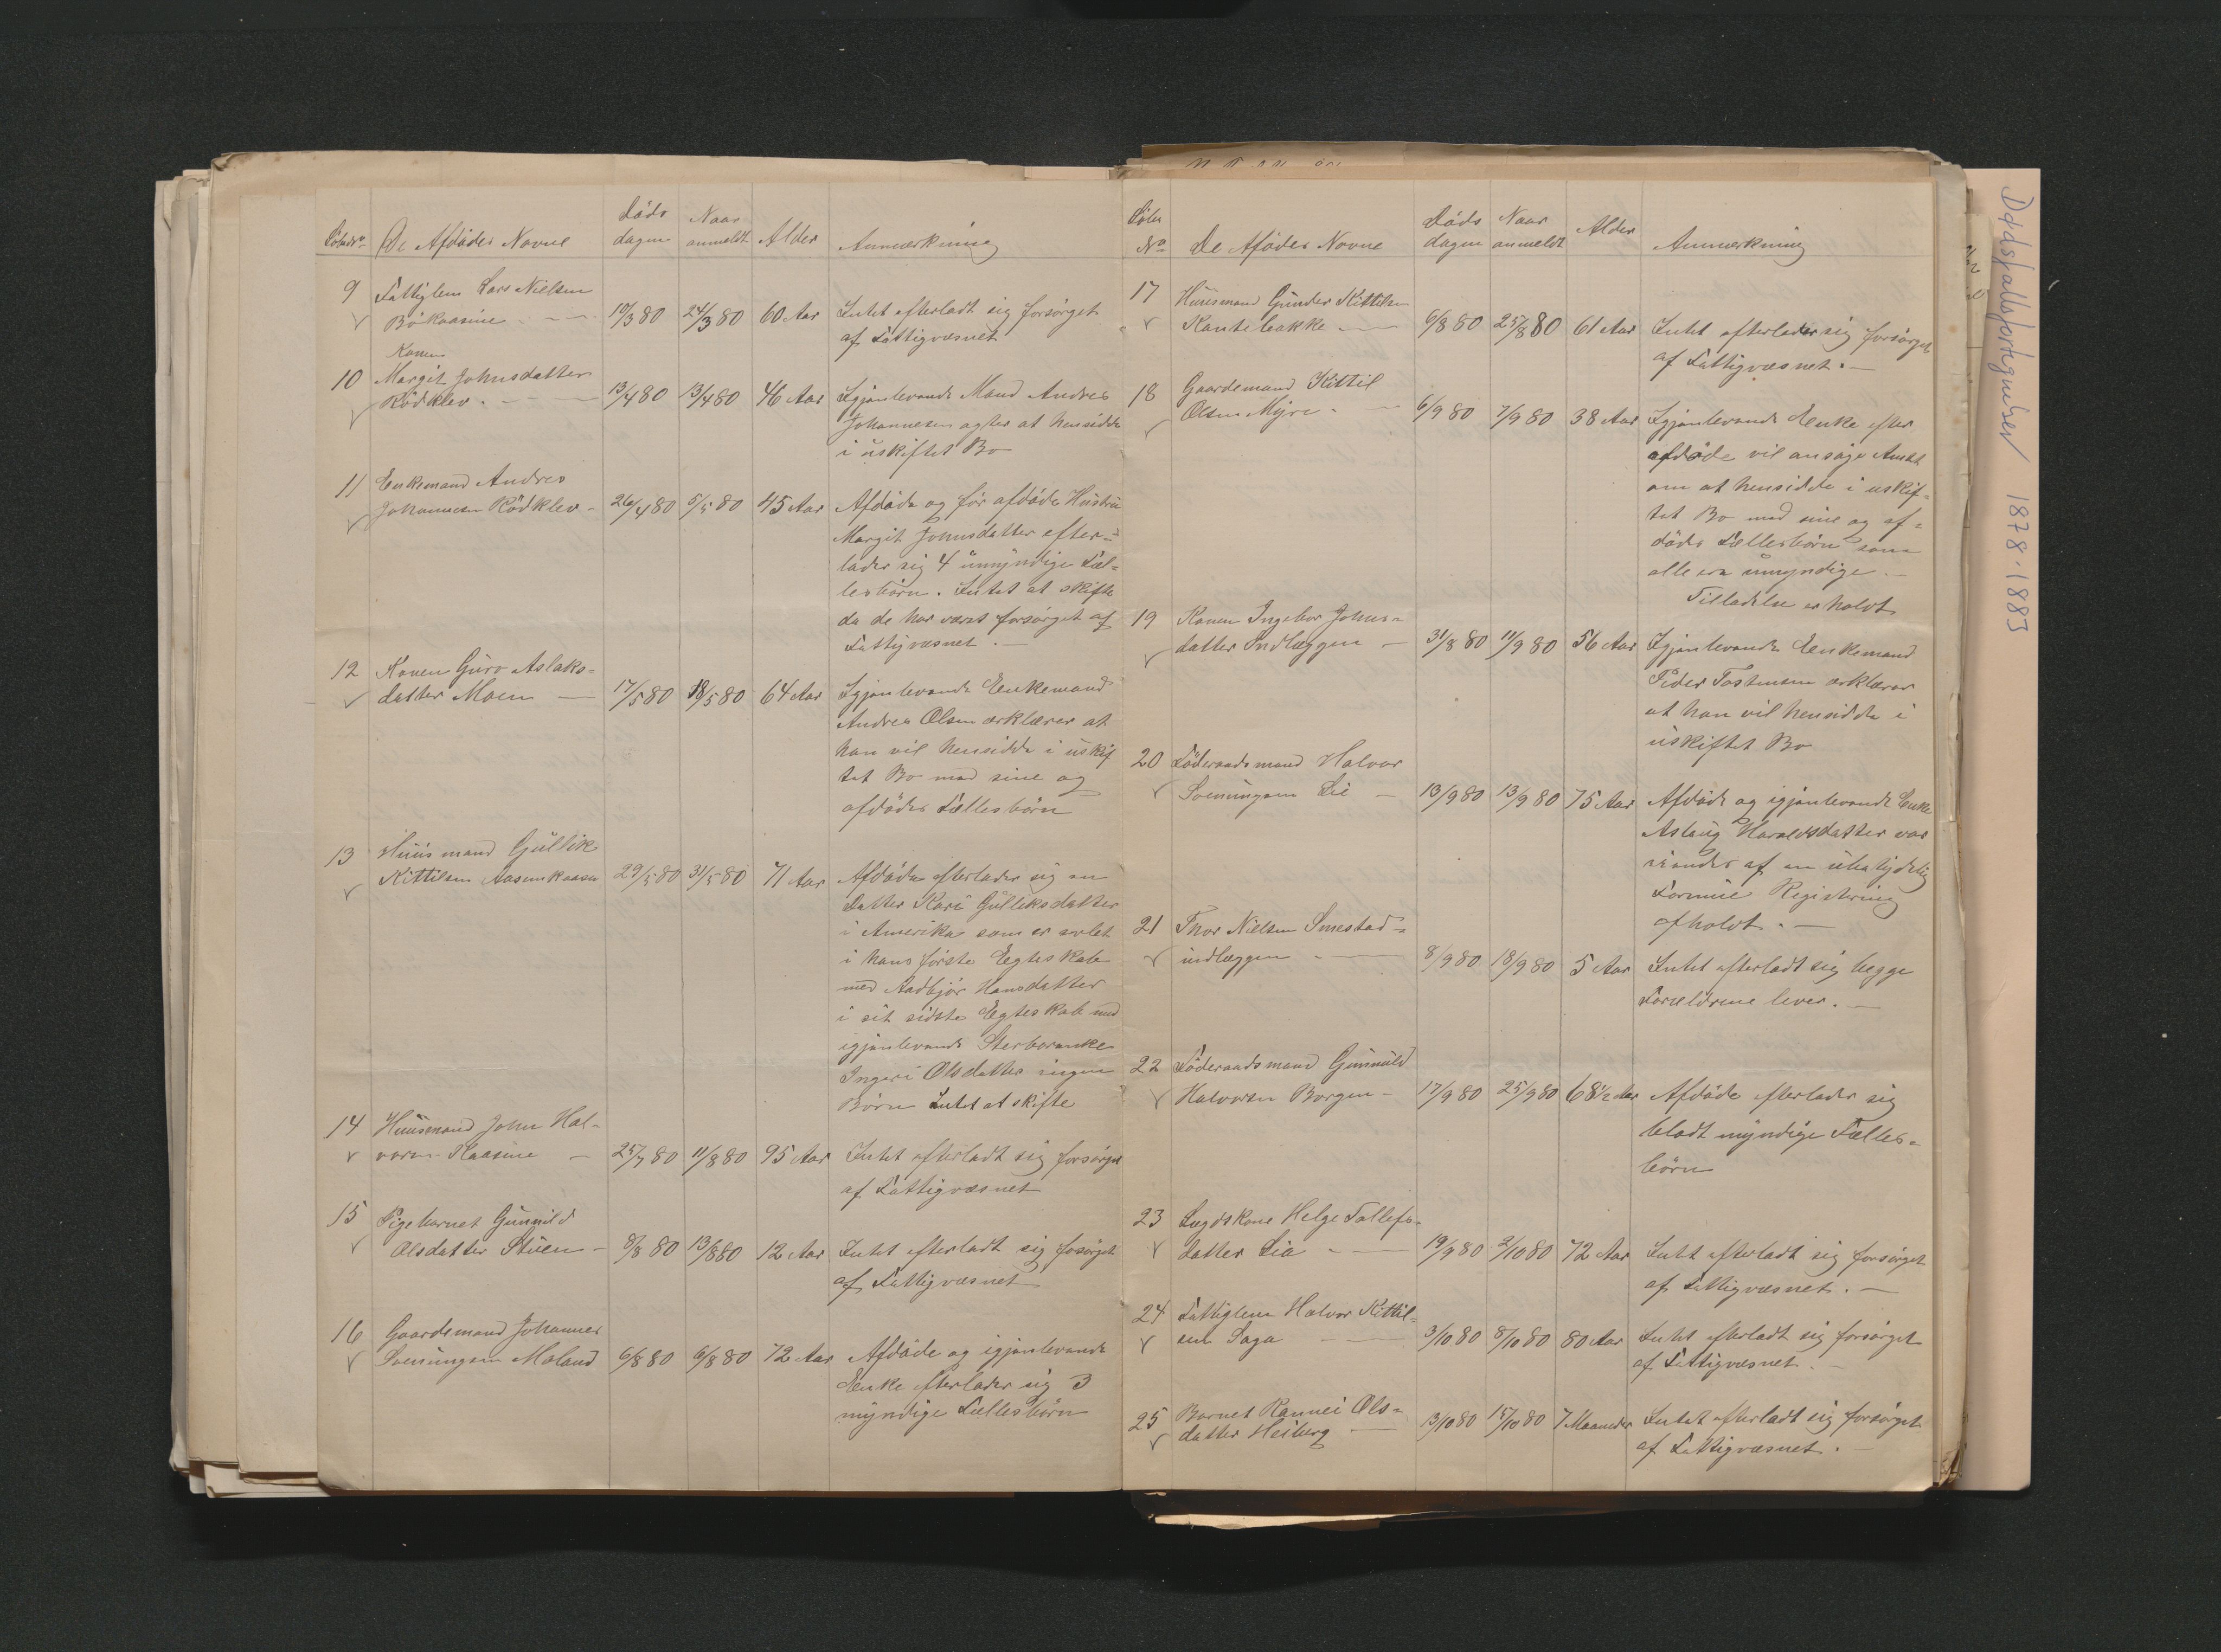 Löbe No De Afdödes Navne Döds dagen Naar anmeldt Alder Anmærkning
9 Fattiglem Lars Nielsen
Bökaasine 19/3 80 24/3 80 60 Aar Intet efterladt sig forsörget
af Fattigvæsnet
Konen
10 Margit Johnsdatter
Rödklev. 13/4 80 13/4 80 46 Aar Igjenlevende Mand Andres
Johannesen agter at hensidde
i uskiftet Bo
11 Enkemand Andres
Johannesen Rödklev - 26/4 80 5/5 80 45 Aar Afdöde og för afdöde Hustru
Margit Johnsdatter efter-
lader sig 4 umyndige Fæl-
lesbörn. Intet at skifte
da de har været forsörget af
Fattigvæsnet. —
12 Konen Guro Aslaks-
datter Moen — 17/5 80 18/5 80 64 Aar Igjenlevende Enkemand
Andres Olsen erklærer at
han vil hensidde i uskif
tet Bo med sine og
afdödes Fællesbörn
13 Huusmand Gullik
Kittilsen Aasenkaasa 29/5 80 31/5 80 71 Aar Afdöde efterlader sig en
Datter Kari Gulleksdatter
i Amerika som er avlet
i hans förste Egteskab
med Aadbjör Hansdatter
i sit sidste Egteskab med
igjenlevende Sterboenke
Ingeri Olsdatter ingen
Börn Intet at skifte
14 Huusmand John Hal-
vorsen Kaasine — 25/7 80 11/8 80 95 Aar Intet efterladt sig forsörget
af Fattigvæsnet
15 Pigebarnet Gunnild
Olsdatter Stuen - 8/8 80 13/8 80 12 Aar Intet efterladt sig fosörget
af Fattigvæsnet
16 Gaardemand Johannes
Sveinungsen Moland 6/8 80 6/8 80 72 Aar Afdöde og igjenlevende
Enke efterlader sig 3
myndige Fællesbörn
Löbe No De Afödes Navne Döds dagen Naar anmeldt Alder Anmærkning
17 Huusmand Gunder Kittilsen
Kontebakke — 6/8 80 25/8 80 61 Aar Intet efterlader sig forsörget
af Fattigvæsnet. —
18 Gaardemand Kittil
Olsen Myre. — 6/9 80 7/9 80 38 Aar Igjenlevende Enke efter
afdöde vil ansöge Amtet
om at hensidde i uskif-
tet Bo med sine og af-
dödes Fællesbörn som
alle ere umyndige. —
Tilladelse erholdt
19 Konen Ingebor Johns-
datter Indlæggen — 31/8 80 11/9 80 56 Aar Igjenlevende Enkemand
Peder Tostensen erklærer
at han vil hensidde i
uskiftet Bo
20 Föderaadsmand Halvor
Sveinungsen Lie — 13/9 80 13/9 80 75 Aar Afdöde og igjenlevende Enke
Aslaug Haraldsdatter var
i eander af en ubetydelig
Formue Registering
afholdt. —
21 Thor Nielsen Smestad-
indlæggen — 8/9 80 18/9 80 5 Aar Intet efterladt sig begge
Forældrene lever. —
22 Föderaadsmand Gunnuld
Halvorsen Borgen - 17/9 80 25/9 80 68 1/2 Aar Afdöde efterlader sig
bladt myndige Fælles-
börn
23 Lægdskone Helge Tollefs-
datter Lia — 19/9 80 2/10 80 72 Aar Intet efterladt sig forsörget
af Fattigvæsnet. —
24 Fattiglem Halvor Kittil-
sen Saga — 3/10 80 8/10 80 80 Aar Intet efterladt sig forsörget
af Fattigvæsnet. —
25 Barnet Rannei Ols-
datter Heiberg — 13/10 80 15/10 80 7 Maaneder Intet efterladt sig forsörget
af Fattigvæsnet. —
Dødsfallsfortegnelser 1878-1883